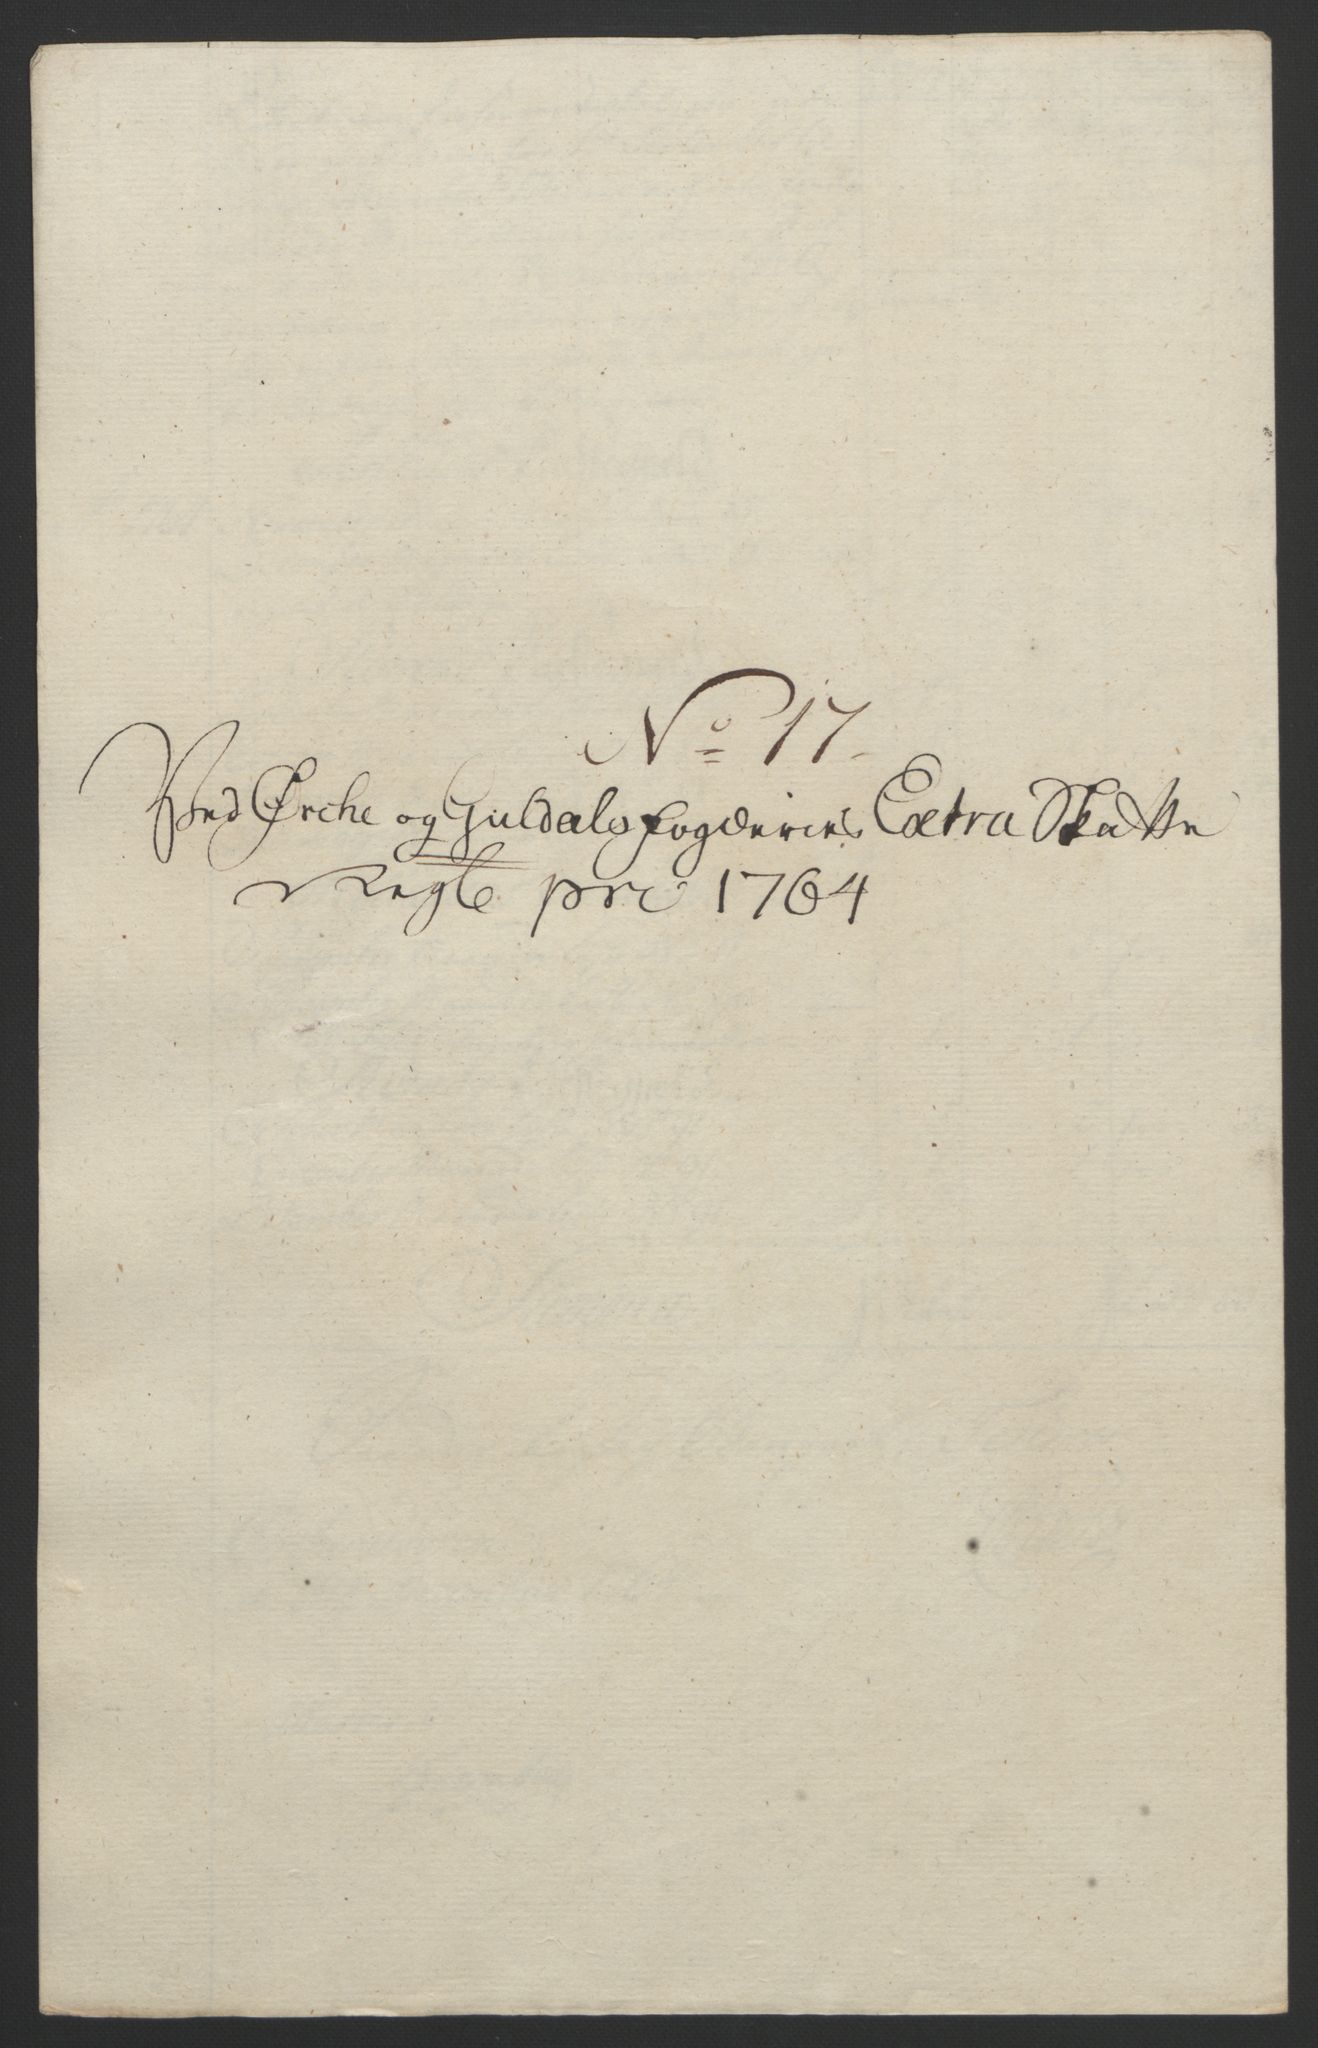 No 17.
Ved Ørche og Guldals fogderies Extra Skatte
Regsk pro 1764